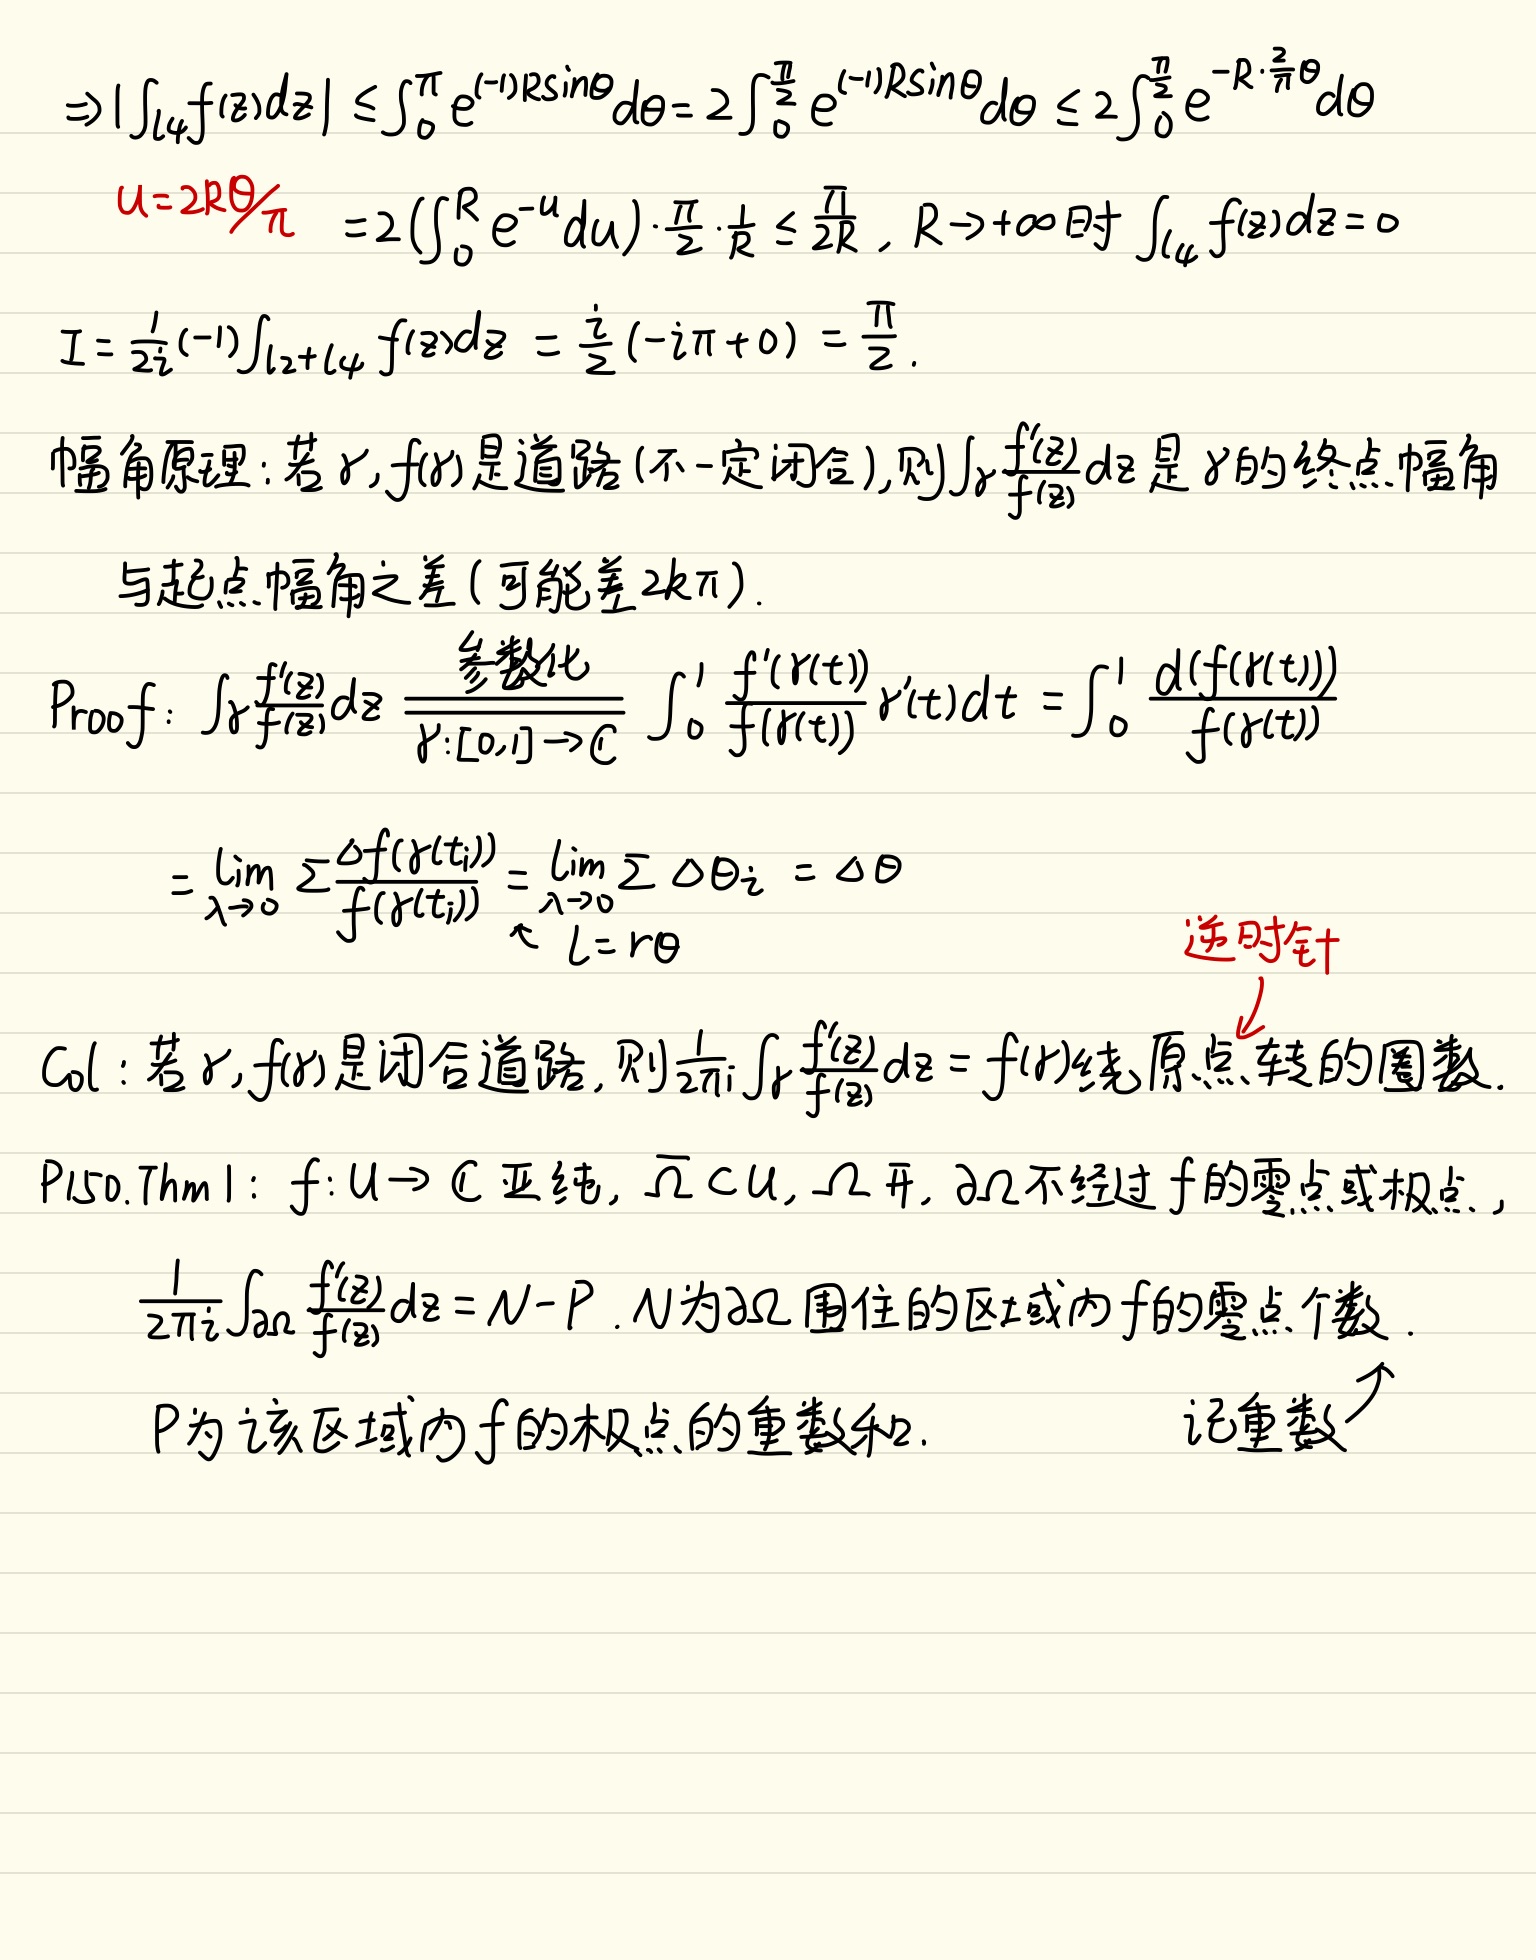 ⇒|∫_{l4} f(z)dz| ≤ ∫_0^π e^{(-1)Rsinθ}dθ = 2∫_0^{π/2} e^{(-1)Rsinθ}dθ ≤ 2∫_0^{π/2} e^{-R·\frac{2}{π}θ}dθ
u=2Rθ/π =2(∫_0^R e^{-u}du)·\frac{π}{2}·\frac{1}{R} ≤ \frac{π}{2R}, R→+∞时 ∫_{l4} f(z)dz=0
I=\frac{1}{2i}(-1)∫_{l2+l4} f(z)dz = \frac{i}{2}(-iπ+0) = \frac{π}{2}.
幅角原理:若γ,f(γ)是道路(不一定闭合),则∫_γ \frac{f'(z)}{f(z)}dz是γ的终点幅角
与起点幅角之差(可能差2kπ).
Proof: ∫_γ \frac{f'(z)}{f(z)}dz \xlongequal[γ:[0,1]→ℂ]{参数化} ∫_0^1 \frac{f'(γ(t))}{f(γ(t))}γ'(t)dt = ∫_0^1 \frac{d(f(γ(t)))}{f(γ(t))}
= lim_{λ→0} Σ\frac{Δf(γ(t_i))}{f(γ(t_i))} = lim_{λ→0} Σ Δθ_i = Δθ
↖ l=rθ
逆时针
Col:若γ,f(γ)是闭合道路,则\frac{1}{2πi}∫_γ \frac{f'(z)}{f(z)}dz=f(γ)绕原点转的圈数.
P150.Thm1: f:U→ℂ亚纯, \overline{Ω}⊂U, Ω开, ∂Ω不经过f的零点或极点,
\frac{1}{2πi}∫_{∂Ω} \frac{f'(z)}{f(z)}dz=N-P. N为∂Ω围住的区域内f的零点个数.
P为该区域内f的极点的重数和. 记重数↗